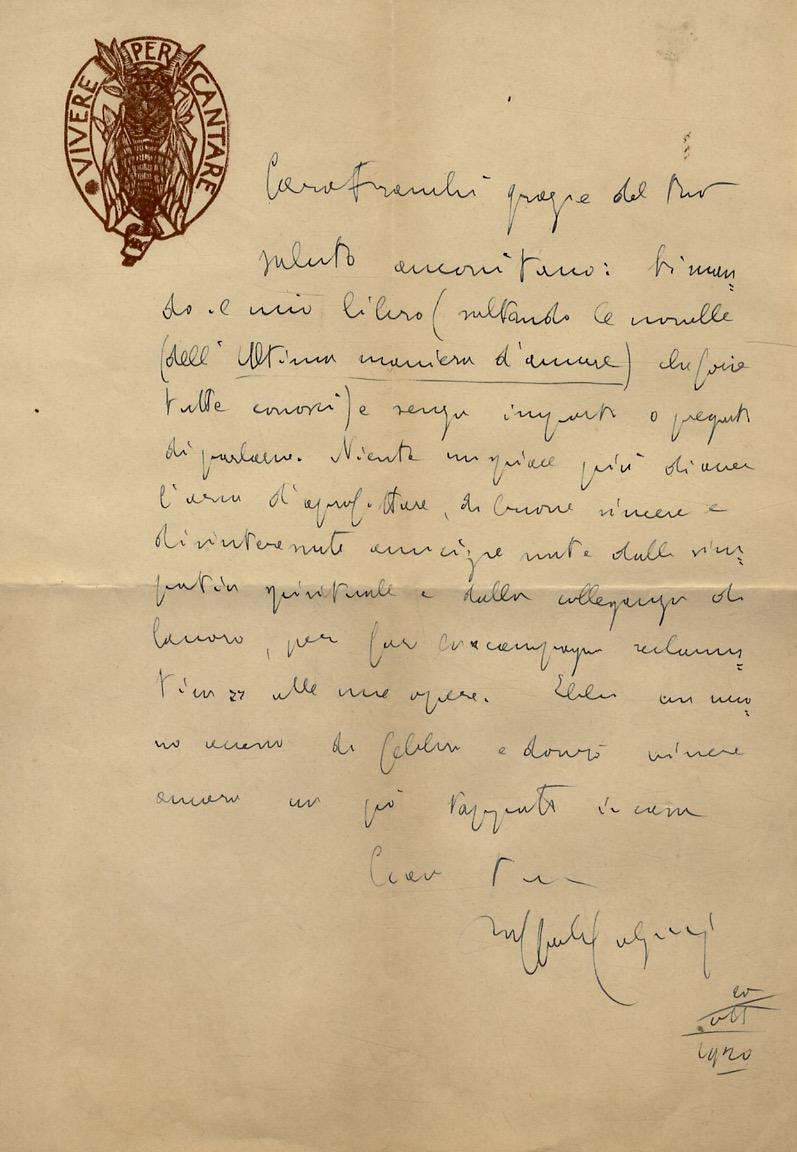 VIVERE PER CANTARE
Caro Franchi grazie del tuo
saluto anconitano: ti man=
do il mio libro (saltando le novelle
(dell'Ultima maniera d'amare) che forse
tutte conosci) e senza importi o pregarti
di parlarne. Niente mi spiace più di aver
l'aria d'approfittare, di buone sincere e
disinteressate amicizie nate dalla sim=
patia spirituale e dalla colleganza di
lavoro, per far
alle mie opere. Ebbi un nuo=
vo accesso di febbre e dovrò vivere
ancora un pò tappato in casa
Ciao tuo
20
ott
1920